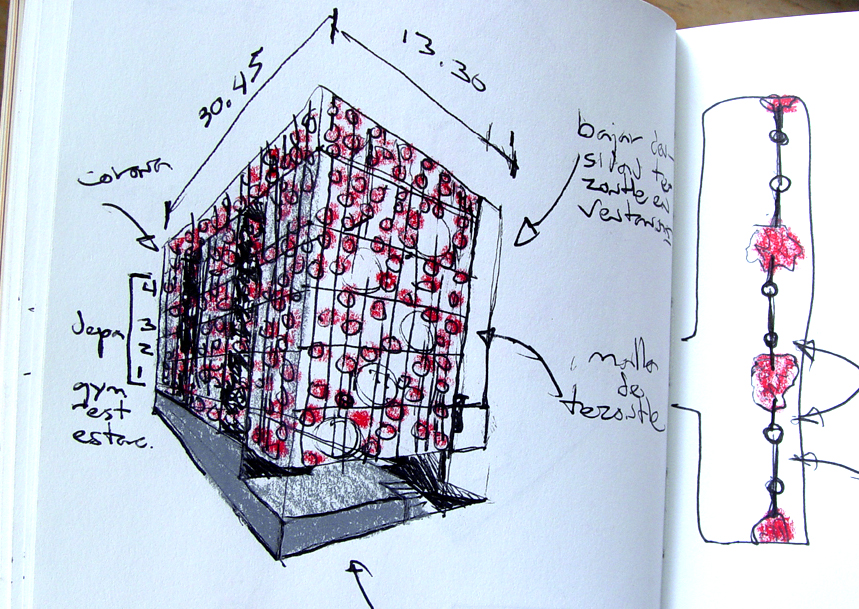 30.45
13.30
corona
bajar den-
sidad te
zontle en
ventanas
4
3
2
1
depa
gym
rest
estac.
malla
de
tezontle